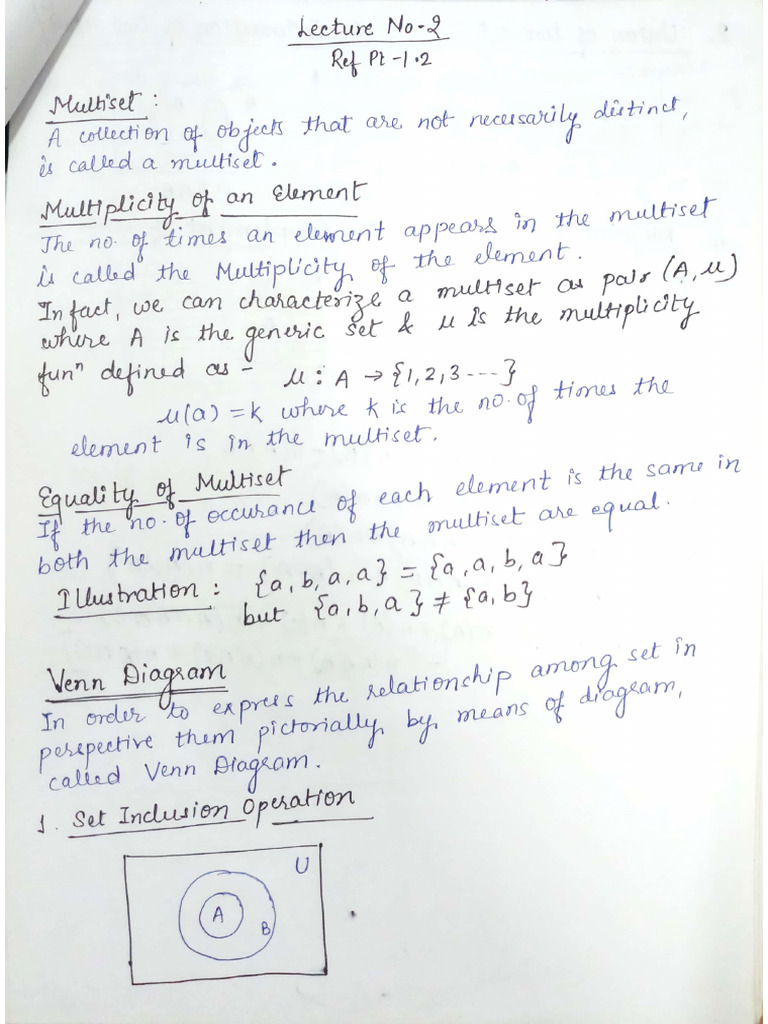 Lecture No-2
Ref Pt-1.2
Multiset :
A collection of objects that are not necessarily distinct,
is called a multiset.
Multiplicity of an Element
The no. of times an element appears in the multiset
is called the Multiplicity of the element.
In fact, we can characterize a multiset as pair (A, μ)
where A is the generic set & μ is the multiplicity
funⁿ defined as - μ : A → {1, 2, 3 ----}
μ(a) = k where k is the no. of times the
element is in the multiset.
Equality of Multiset
If the no. of occurance of each element is the same in
both the multiset then the multiset are equal.
Illustration : {a, b, a, a} = {a, a, b, a}
but {a, b, a} ≠ {a, b}
Venn Diagram
In order to express the relationship among set in
perspective them pictorially by means of diagram,
called Venn Diagram.
1. Set Inclusion Operation
U
A
B